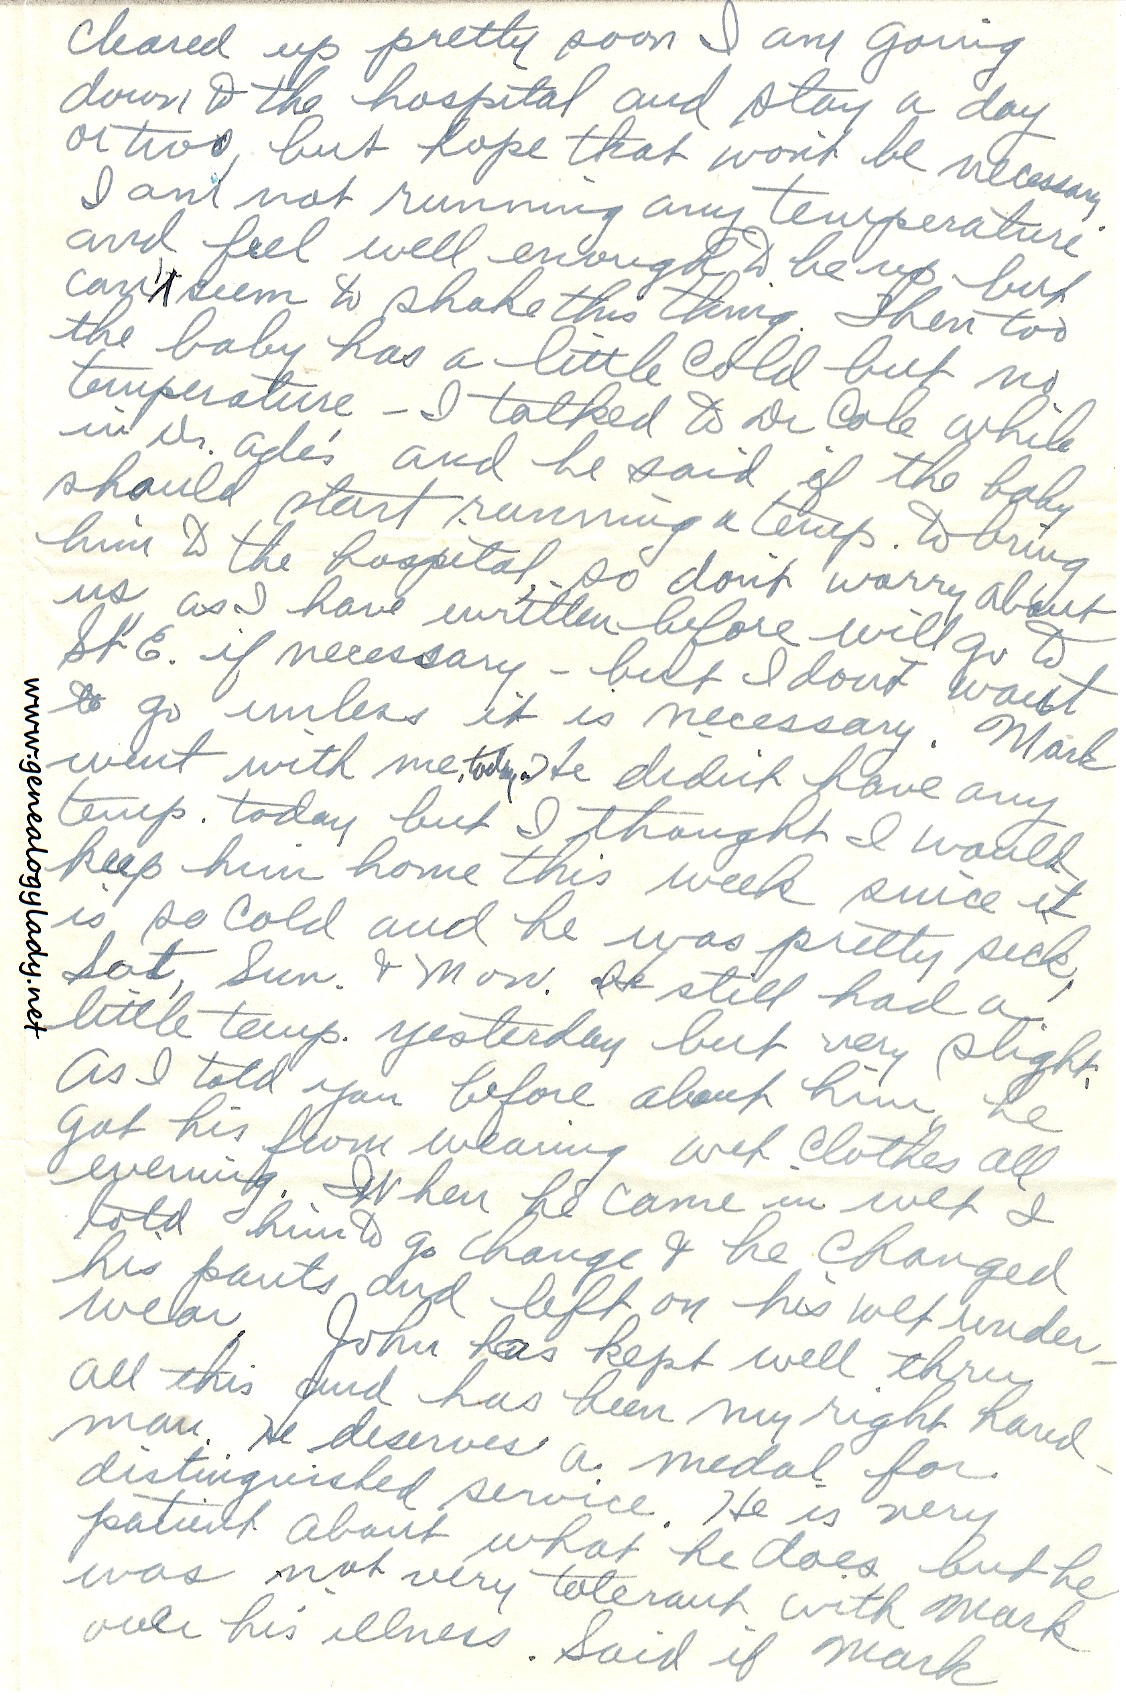 cleared up pretty soon I am going
down to the hospital and stay a day
or two, but hope that won't be necessary
I am not running any temperature
and feel well enough to be up but
can't seem to shake this thing. Then too
the baby has a little cold but no
temperature – I talked to Dr Cole while
in Dr. Ade's and he said if the baby
should start running a temp. to bring
him to the hospital – so don't worry about
us, as I have written before will go to
St. E. if necessary – but I don't want
to go unless it is necessary. Mark
went with me, today. He didn't have any
temp. today but I thought I would
keep him home this week since it
is so cold and he was pretty sick,
Sat, Sun. & Mon. He still had a
little temp. yesterday but very slight.
As I told you before about him, he
got his from wearing wet clothes all
evening. When he came in wet I
told him to go change & he changed
his pants and left on his wet under-
wear. John has kept well thru
all this and has been my right hand-
man. He deserves a medal for
distinguished service. He is very
patient about what he does but he
was not very tolerant with Mark
over his illness. Said if Mark
www.genealogylady.net